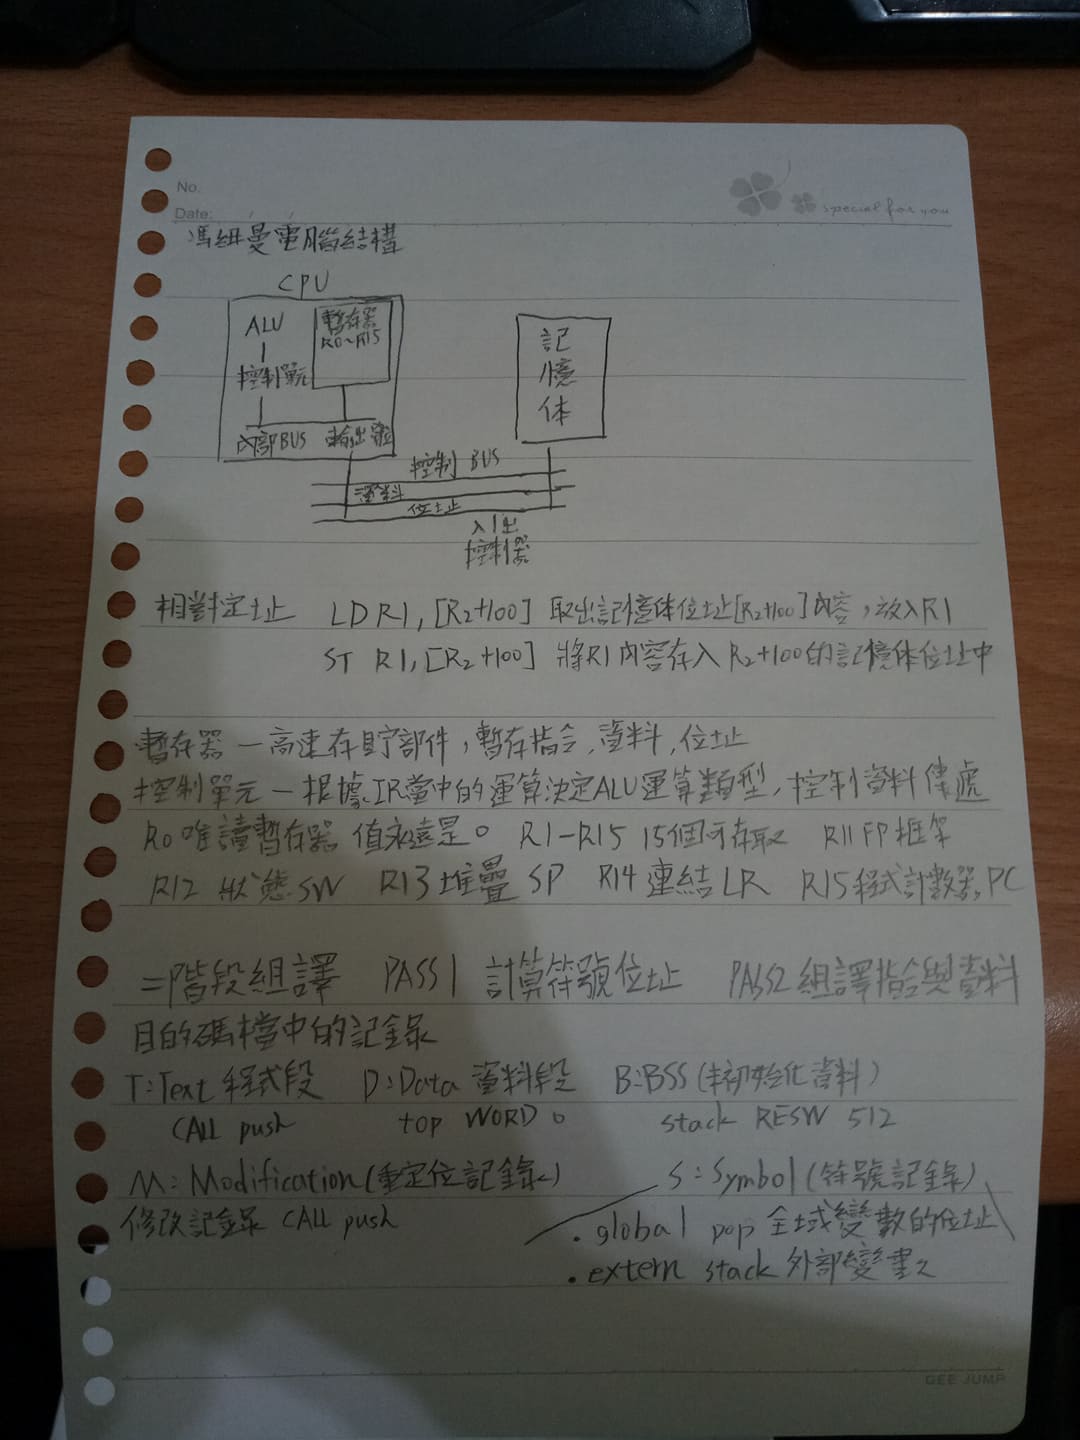 No.
Date: / /
special for you
馮紐曼電腦結構
CPU
ALU
暫存器
R0~R15
控制單元
內部BUS
記憶体
控制 BUS
資料
位址
入/出
控制器
相對定址 LD R1, [R2+100] 取出記憶体位址[R2+100]內容，放入R1
ST R1, [R2+100] 將R1內容存入 R2+100的記憶体位址中
暫存器 — 高速存貯部件，暫存指令,資料,位址
控制單元 — 根據IR當中的運算決定ALU運算類型，控制資料傳處
R0 唯讀暫存器 值永遠是0 R1-R15 15個可存取 R11 FP 框架
R12 狀態SW R13 堆疊 SP R14 連結 LR R15程式計數器 PC
二階段組譯 PASS1 計算符號位址 PASS2 組譯指令與資料
目的碼檔中的記錄
T:Text 程式段 D:Data 資料段 B:BSS(未初始化資料)
CALL push top WORD 0 stack RESW 512
M: Modification(重定位記錄) S: Symbol(符號記錄)
修改記錄 CALL push
. global pop 全域變數的位址
. extern stack 外部變數
GEE JUMP